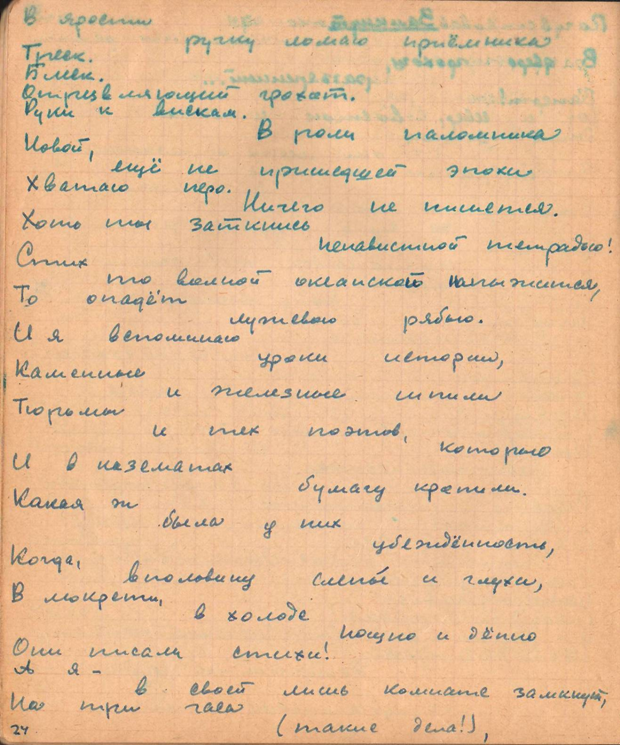 В ярости
ручку ломаю приёмника
Треск.
Блеск.
Отрезвляющий грохот.
Руки к вискам.
В роли паломника
Новой,
ещё не пришедшей эпохи
Хватаю перо.
Ничего не пишется.
Хоть ты заткнись
ненавистной тетрадью!
Стих
то волной океанской
То опадёт
лужевою рябью.
И я вспоминаю
уроки истории,
Каменные
и железные шпили
Тюрьмы
и тех поэтов,
которые
И в казематах
бумагу кропили.
Какая ж
была у них
убеждённость,
Когда,
вполовину слепы и глухи,
В мокрети,
в холоде
нощно и дённо
Они писали стихи!
А я -
в своей лишь комнате замкнут,
На три часа
(такие дела!),
24